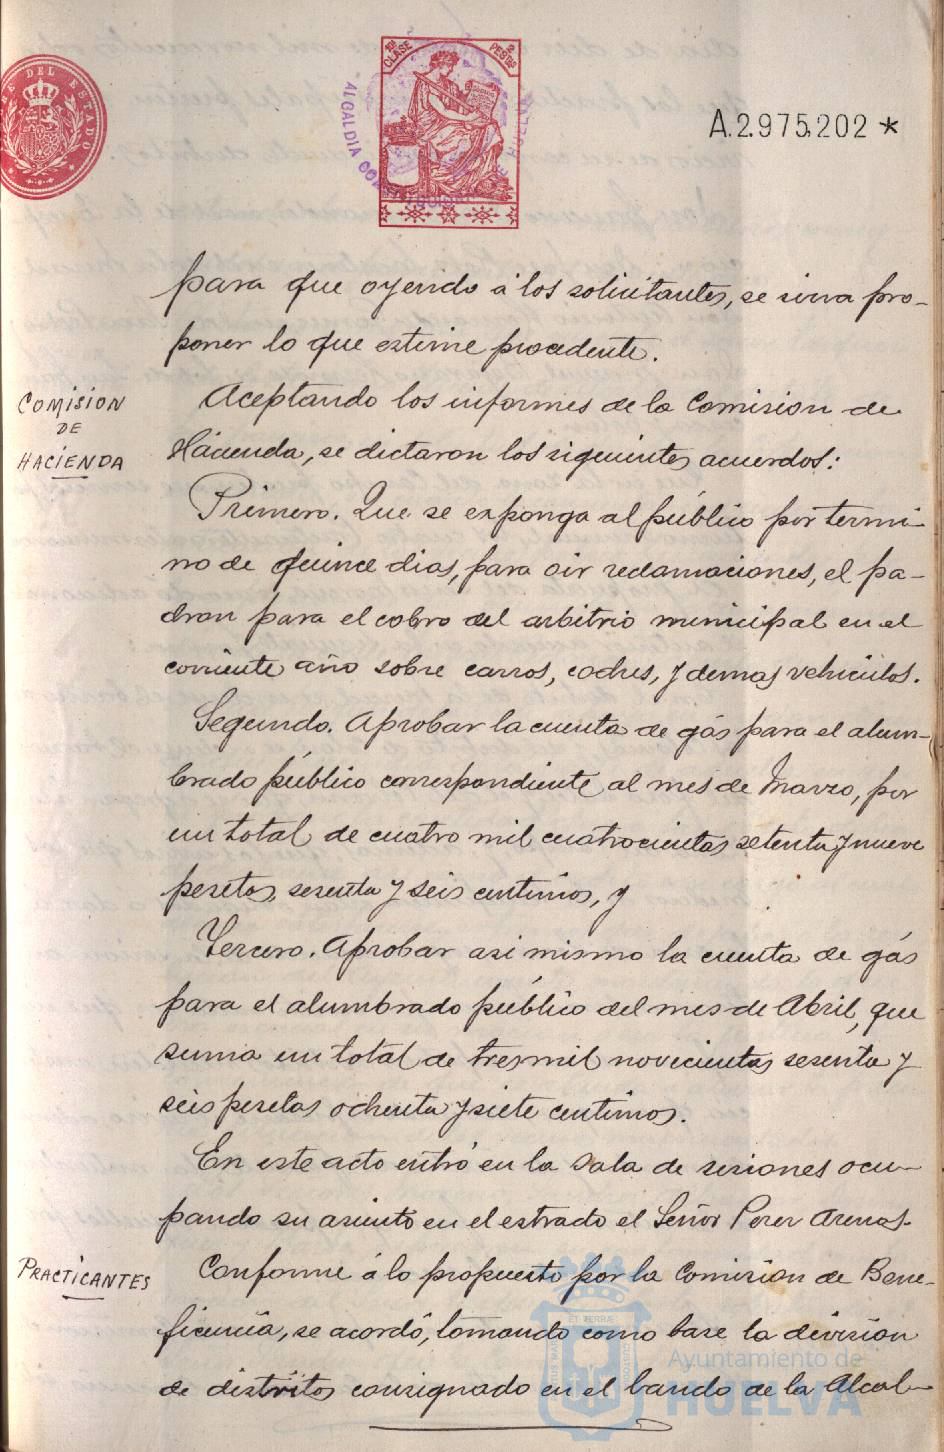 DEL ESTADO
10ª CLASE
2 PESTAS
ALCALDIA CONSTITUCIONAL
A.2.975.202 *
para que oyendo á los solicitantes, se sirva pro-
poner lo que estime procedente.
COMISION
DE
HACIENDA
Aceptando los informes de la Comision de
Hacienda, se dictaron los siguientes acuerdos:
Primero. Que se exponga al público por termi-
no de quince dias, para oir reclamaciones, el pa-
dron para el cobro del arbitrio municipal en el
corriente año sobre carros, coches, y demas vehiculos.
Segundo. Aprobar la cuenta de gás para el alum-
brado público correspondiente al mes de Marzo, por
un total de cuatro mil cuatrocientas setenta y nueve
pesetas, sesenta y seis centimos, y
Tercero. Aprobar asi mismo la cuenta de gás
para el alumbrado público del mes de Abril, que
suma un total de tres mil novecientas sesenta y
seis pesetas ochenta y siete centimos.
En este acto entró en la Sala de sesiones ocu-
pando su asiento en el estrado el Señor Perez Arenas.
PRACTICANTES
Conforme á lo propuesto por la Comision de Bene-
ficencia, se acordó, tomando como base la division
de distritos consignado en el bando de la Alcal-
Ayuntamiento de
HUELVA